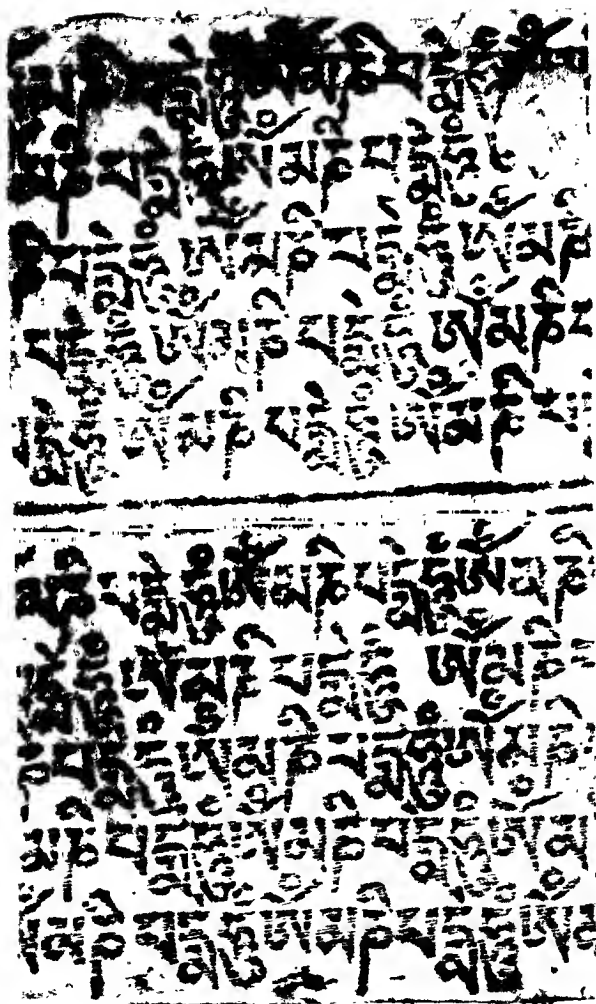 མ ཎི པ དྨེ ཧཱུྃ ཨོཾ མ ཎི པ དྨེ ཧཱུྃ ཨོཾ མ
མ ཎི པ དྨེ ཧཱུྃ ཨོཾ མ ཎི པ དྨེ ཧཱུྃ
ཎི པ དྨེ ཧཱུྃ ཨོཾ མ ཎི པ དྨེ ཧཱུྃ ཨོཾ མ ཎི
པ དྨེ ཧཱུྃ ཨོཾ མ ཎི པ དྨེ ཧཱུྃ ཨོཾ མ ཎི པ
དྨེ ཧཱུྃ ཨོཾ མ ཎི པ དྨེ ཧཱུྃ ཨོཾ མ ཎི པ
མ ཎི པ དྨེ ཧཱུྃ ཨོཾ མ ཎི པ དྨེ ཧཱུྃ ཨོཾ མ ཎི
དྨེ ཧཱུྃ ཨོཾ མ ཎི པ དྨེ ཧཱུྃ ཨོཾ མ ཎི པ
ཎི པ དྨེ ཧཱུྃ ཨོཾ མ ཎི པ དྨེ ཧཱུྃ ཨོཾ མ ཎི
མ ཎི པ དྨེ ཧཱུྃ ཨོཾ མ ཎི པ དྨེ ཧཱུྃ ཨོཾ མ
ཨོཾ མ ཎི པ དྨེ ཧཱུྃ ཨོཾ མ ཎི པ དྨེ ཧཱུྃ ཨོཾ མ